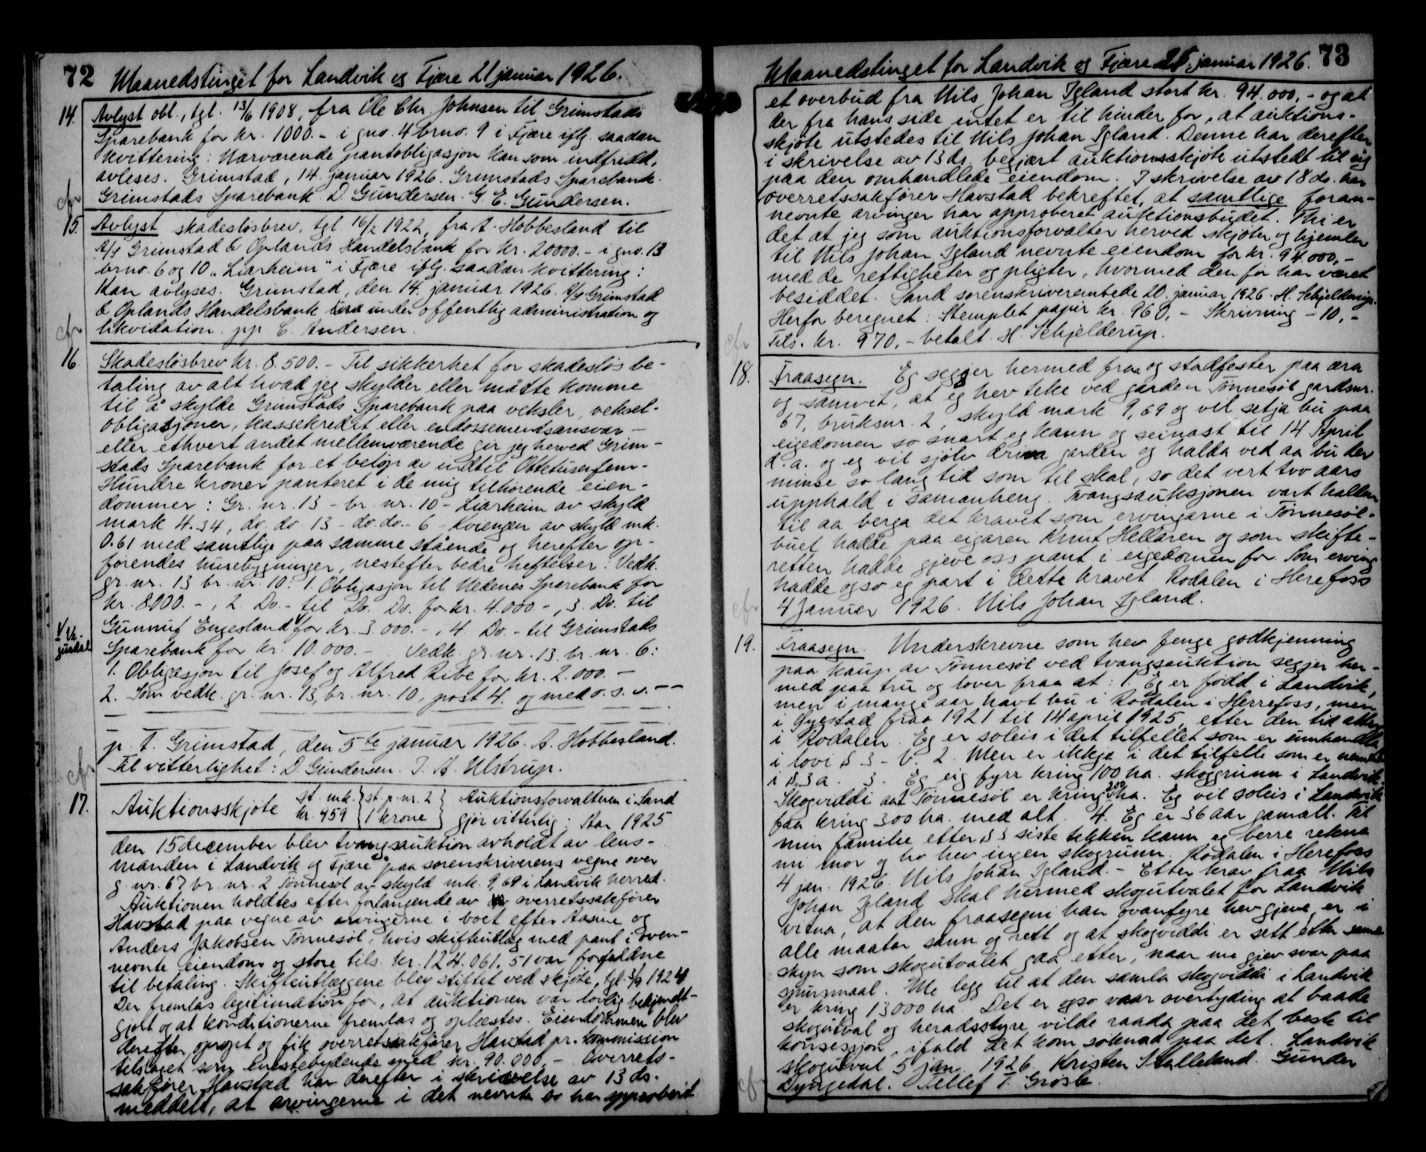 72 Maanedstinget for Landvik og Fjære 21 januar 1926.
14. Avlyst obl., tgl. 13/6 1908, fra Ole Chr. Johnsen til Grimstads
Sparebank for kr. 1000.- i gno. 4 brno. 9 i Fjære iflg. saadan
kvittering: Nærværende pantobligasjon kan som indfridd,
avleses. Grimstad, 14 januar 1926. Grimstads Sparebank.
cfr Grimstads Sparebank D. Gundersen. G. E. Gundersen.
15. Avlyst skadesløsbrev, tgl 16/2 1922, fra A. Hobbesland til
A/s Grimstad & Oplands Handelsbank for kr. 20000.- i gno. 13
brno. 6 og 10 "Liarheim" i Fjære iflg. saadan kvittering:
Kan avlyses. Grimstad, den 14. januar 1926. A/s Grimstad
& Oplands Handelsbank under offentlig administration og
cfr likvidation. pp C. Andersen.
16 Skadesløsbrev kr. 8.500.- Til sikkerhet for skadesløs be-
taling av alt hvad jeg skylder eller måtte komme
til å skylde Grimstads Sparebank paa veksler, veksel-
obligasjoner, kassekreditt eller endossementsansvar -
eller ethvert andet mellemværende gir jeg herved Grim-
stads Sparebank for et beløp av indtil Ottetusenfem-
Hundre kroner panteret i de mig tilhørende eien-
dommer: Gr. nr. 13 - br. nr. 10 - Liarheim av skyld
mark 4.34, do. do 13 - do do. - 6 - av skyld mk.
0.61 med samtlige paa samme stående og herefter op-
førendes husebygninger, nestefter bedre heftelser: Vedk.
gr. nr. 13 br. nr. 10: 1. Obligasjon til Vedenes Sparebank for
kr. 8000.-, 2. Do. - til Do. Do. for kr. 4.000 -, 3. Do. til
Gunnuf Engesland for kr. 3.000.-, 4. Do. - til Grimstads
Sparebank for kr. 10.000.- Vedk. gr. nr. 13. br. nr. 6:
1. Obligasjon til Josef og Alfred Ribe for kr. 2.000.-
2. Som vedk. gr. nr. 13, br. nr. 10, post 4. og med o. s. v. --
p. t. Grimstad, den 5te januar 1926. A. Hobbesland.
cfr Til vitterlighet: D. Gundersen. T. A. Ulstrup.
17. Auktionsskjøte St. mk. kr. 959 } st p. nr. 2 1 krone } Auktionsforvalteren i Sand
gjør vitterlig: Aar 1925
den 15 december blev tvangsauktion avholdt av lens-
manden i Landvik og Fjære paa sorenskriverens vegne over
g nr. 67 br. nr. 2 Tønnesøl av skyld mk. 9,69 i Landvik herred.
Auktionen holdtes efter forlangende av overretssakfører
Havstad paa vegne av arvingerne i boet efter Aasne og
Anders Jakobsen Tønnesøl, hvis skifteutlæg med pant i oven-
nevnte eiendom og store tils. kr. 124.061,51 var forfaldne
til betaling. Skifteutlæggene blev stiftet ved skjøte, tgl. 1924
Der fremlas legitimation for, at auktionen var lovlig bekjendt-
gjort og at konditionerne fremlas og oplæstes. Eiendommen blev
derefter opropt og fik overretssakfører Havstad pr. kommission
tilslaget som høiestbydende med kr. 90.000.- Overrets-
sakfører Havstad har derefter i skrivelse av 13 ds.
meddelt, at arvingerne i det nevnte bo har approbert
Maanedstinget for Landvik og Fjære 21 januar 1926. 73
et overbud fra Nils Johan Igland stort kr. 94.000,- og at
der fra hans side intet er til hinder for, at auktions-
skjøte utstedes til Nils Johan Igland. Denne har derefter
i skrivelse av 13 ds. begjært auktionsskjøte utstedt til sig
paa den omhandlede eiendom. I skrivelse av 18 ds. har
overretssakfører Havstad bekreftet, at samtlige foran-
nevnte arvinger har approberet auktionsbudet. Thi er
det at jeg som auktionsforvalter herved skjøter og hjemler
til Nils Johan Igland nevnte eiendom for kr. 94.000,-
med de rettigheter og pligter, hvormed den før har været
besiddet. Sand sorenskriverembede 20. januar 1926. H. Schjelderup.
Herfor beregnet: Stemplet papir kr. 960,- Skrivning - 10,-
cfr Tils. kr. 970,- betalt. H. Schjelderup.
18. Fraasegn. Eg segjer hermed fraa og stadfester paa æra
og samvet, at eg hev teke ved garden Tønnesøl gardsnr.
67, bruksnr. 2, skyld mark 9,69 og vil setja bu paa
eigedomen so snart eg kann og seinast til 14 April
d. a. og eg vil sjølv driva garden og halda ved aa bu der
minse so lang tid som til skal, so det vert tvo aars
upphald i samanheng. Tvangsauksjonen vart hallen
til aa berga det kravet som ervingarne i Tønnesøl-
buet hadde paa eigaren Knut Hellåren og som skifte-
retten hadde gjeve oss pant i eigedomen for. Som erving
hadde ogso eg part i dette kravet. Rodalen i Herefoss
cfr 4 januar 1926. Nils Johan Igland.
19. Fraasegn. Underskrevne som hev fenge godkjenning
paa kaup av Tønnesøl ved tvangsauktion segjer her-
med paa tru og lover fraa at: 1. Eg er født i Landvik,
men i mange aar havt bu i Rodalen i Herrefoss, men
i Øyestad fraa 1921 til 14 april 1925, etter den tid atter
i Rodalen. Eg er soleis i det tilfellet som er umhandla
i lovi § 3 - 2. Men er ikkje i det tilfelle som er nemnt
i § 3 a. 3. Eg eig fyrr kring 100 ha. skoggrunn i Landvik
Skogviddi aat Tønnesøl er kring 200 ha. Eg vil soleis i Landvik
faa kring 300 ha. med alt. 4. Eg er 36 aar gamall. Til
min familie etter § 3 siste lekken kann eg berre rekna
mi mor og ho hev ingen skogrunn. Rodalen i Herefoss
4 jan. 1926. Nils Johan Igland. - Etter krav fraa Nils
Johan Igland skal hermed skogutvalet for Landvik
vitna, at den fraasegni han ovanfyre hev gjeve, er i
alle maatar sann og rett og at skogviddi er sett etter same
skyn som skogutvalet gaa etter, naar me gjev svar paa
spursmaal. Me legg til at den samla skogviddi i Landvik
er kring 13000 ha. Det er ogso vaar overtyding at baade
skogutval og heradsstyre vilde raada paa det beste til
konsesjon, ifald det kom søknad paa det. Landvik
skogutval 5 jan. 1926. Kristen Stalleland. Gunder
cfr Dyngedal. Tellef T. Grosle.